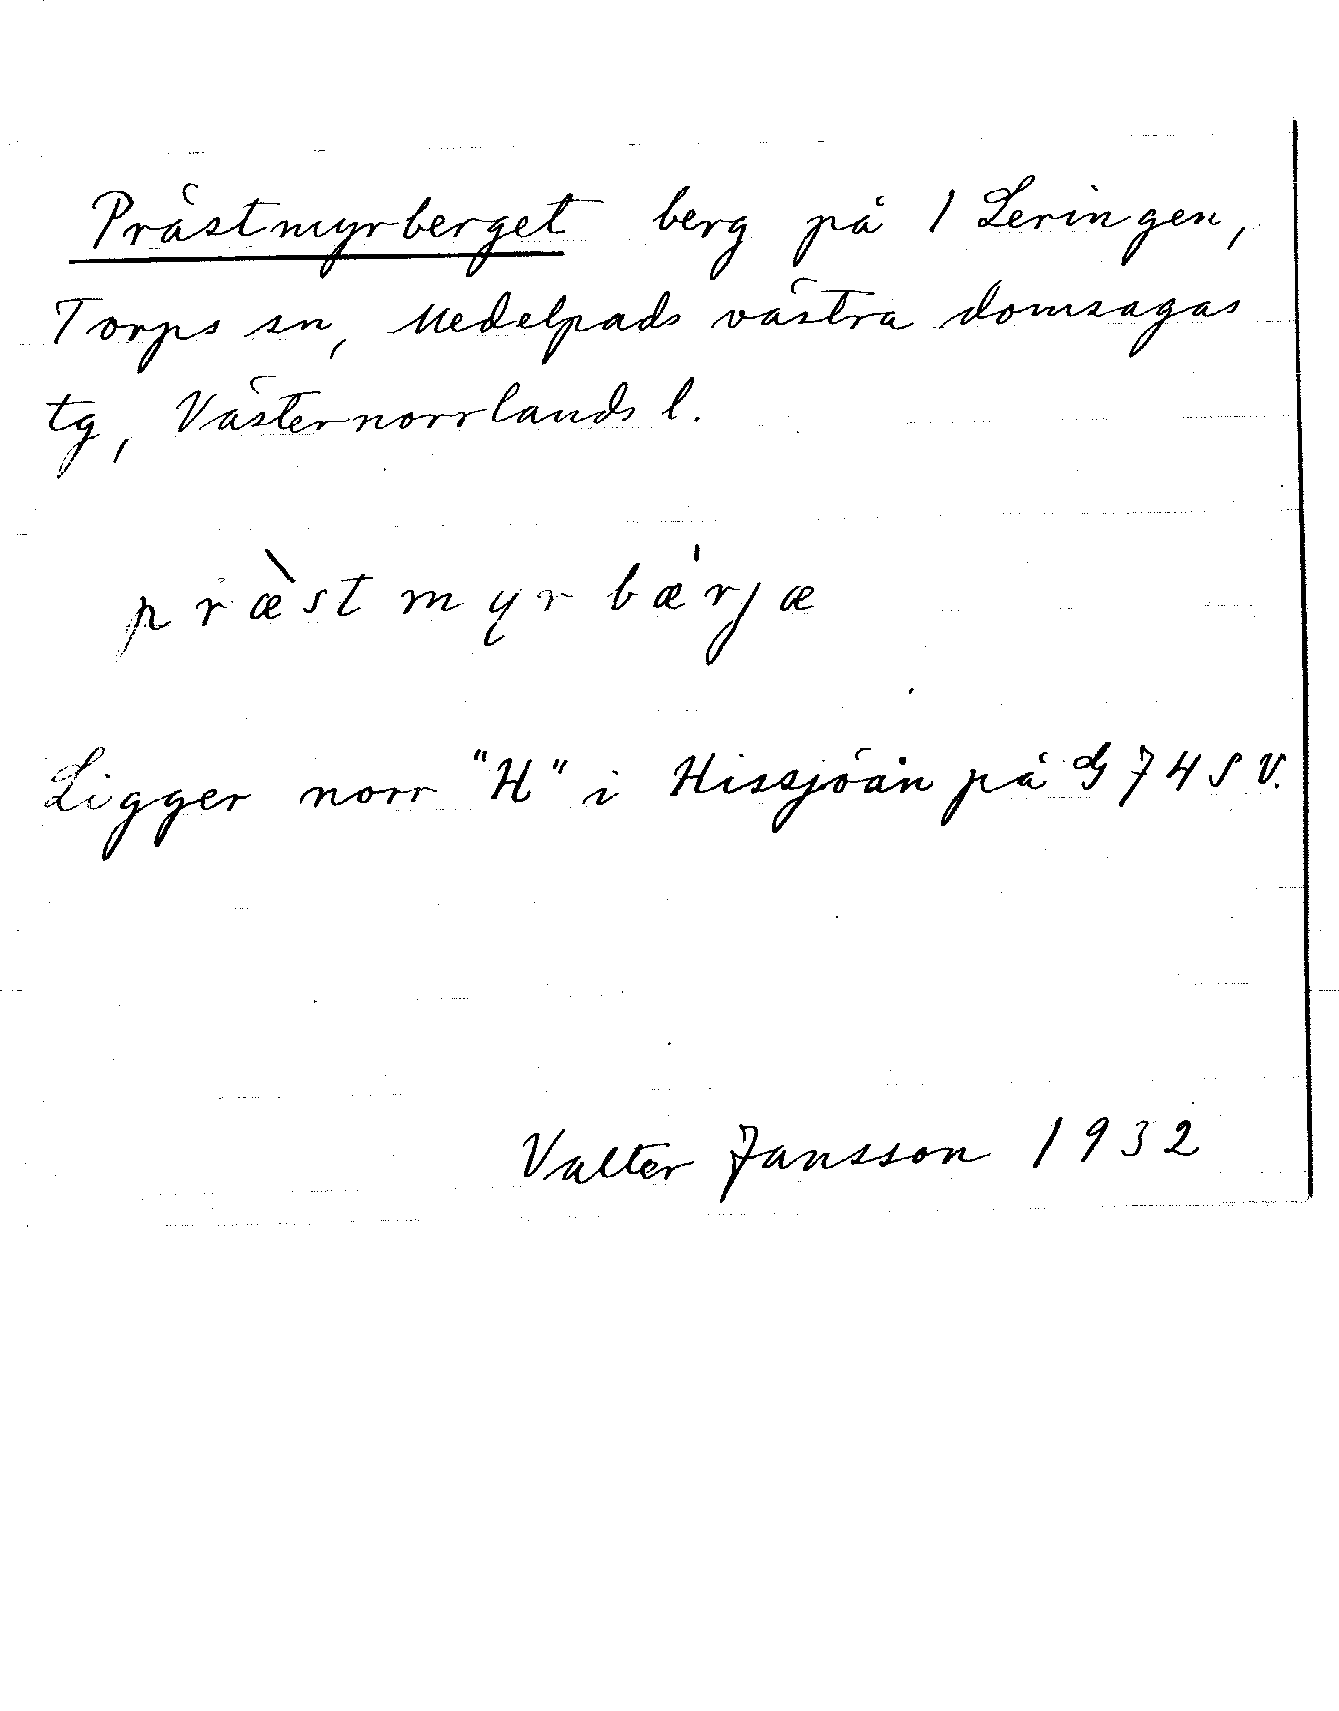 Prästmyrberget berg på 1 Leringen,
Torps sn, Medelpads västra domsagas
tg, Västernorrlands l.
præ̀stmyrbæ̍rjæ
Ligger norr "H" i Hissjöån på G 74 S V.
Valter Jansson 1932